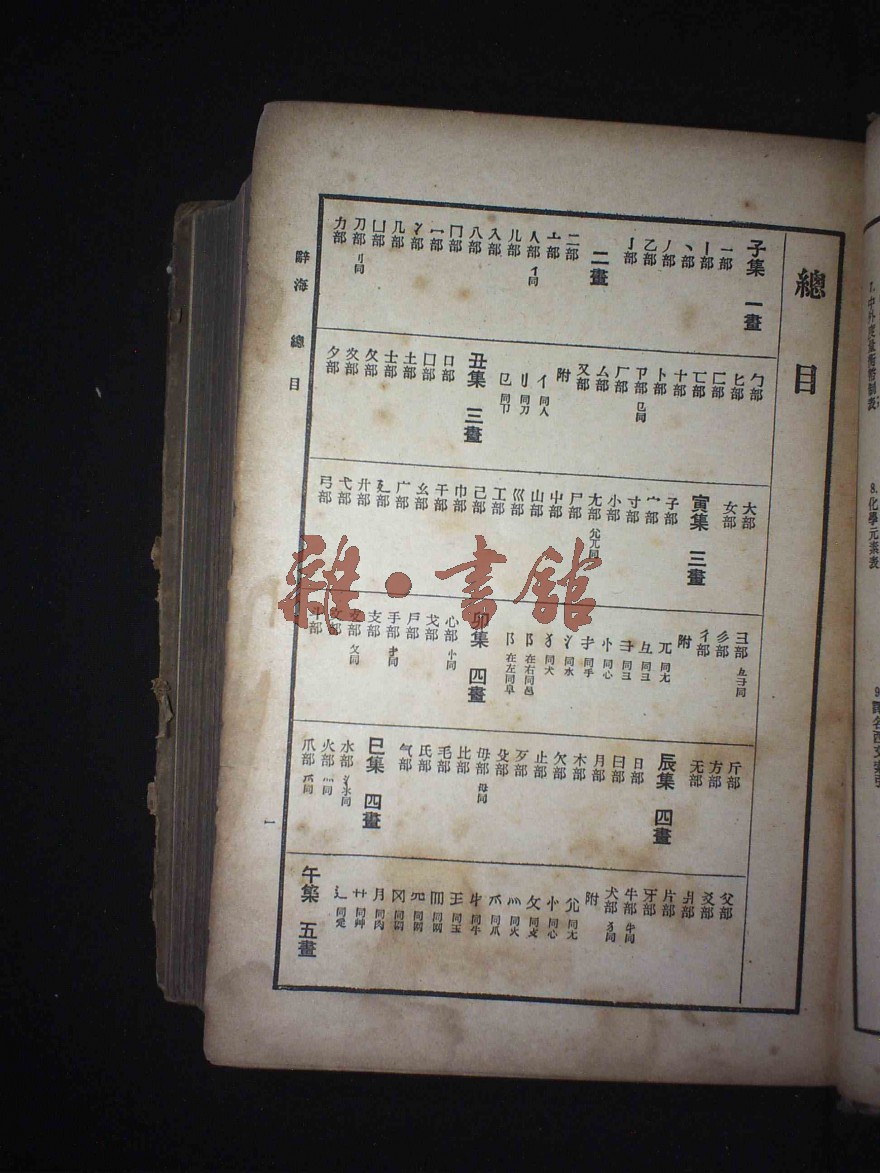 總目
子集 一畫
一部
丨部
丶部
丿部
乙部
亅部
二畫
二部
亠部
人部 亻同
儿部
入部
八部
冂部
冖部
冫部
几部
凵部
刀部 刂同
力部
勹部
匕部
匚部
匸部
十部
卜部
卩部 㔾同
厂部
厶部
又部
附
亻 同人
刂 同刀
㔾 同卩
丑集 三畫
口部
囗部
土部
士部
夂部
夊部
夕部
大部
女部
寅集 三畫
子部
宀部
寸部
小部
尢部 尣兀同
尸部
屮部
山部
巛部
工部
己部
巾部
干部
幺部
广部
廴部
廾部
弋部
弓部
彐部 彑⺕同
彡部
彳部
附
兀 同尢
彑 同彐
⺕ 同彐
忄 同心
扌 同手
氵 同水
犭 同犬
阝 在右同邑
阝 在左同阜
卯集 四畫
心部 忄同
戈部
戶部
手部 扌同
支部
攴部 攵同
文部
斗部
斤部
方部
无部
辰集 四畫
日部
曰部
月部
木部
欠部
止部
歹部
殳部
毋部 母同
比部
毛部
氏部
气部
巳集 四畫
水部 氵氺同
火部 灬同
爪部 爫同
父部
爻部
爿部
片部
牙部
牛部 牜同
犬部 犭同
附
尣 同尢
㣺 同心
攵 同攴
灬 同火
爫 同爪
牜 同牛
王 同玉
罒 同网
冈 同网
月 同肉
艹 同艸
辶 同辵
午集 五畫
辭海 總目
一
雜·書館
8.化學元素表